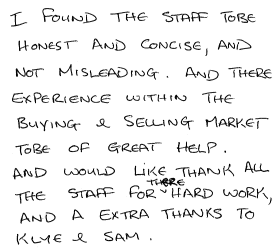 I FOUND THE STAFF TOBE
HONEST AND CONCISE, AND
NOT MISLEADING. AND THERE
EXPERIENCE WITHIN THE
BUYING & SELLING MARKET
TOBE OF GREAT HELP.
AND WOULD LIKE THANK ALL
THE STAFF FOR THERE HARD WORK,
AND A EXTRA THANKS TO
KLYE & SAM.